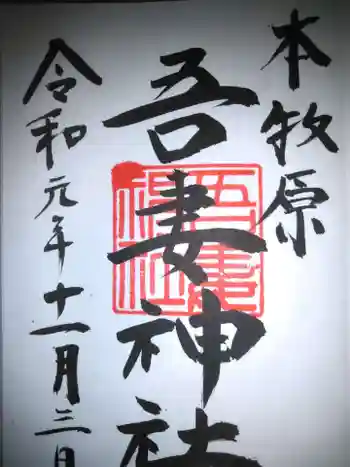 本牧原
吾妻神社
令和元年十一月三日